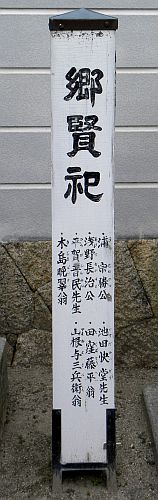 郷賢祀
・浦 宗勝公
・浅野長治公
・平賀晋民先生
・木島晩翠翁
・池田快堂先生
・田窪藤平翁
・山根与三兵衛翁